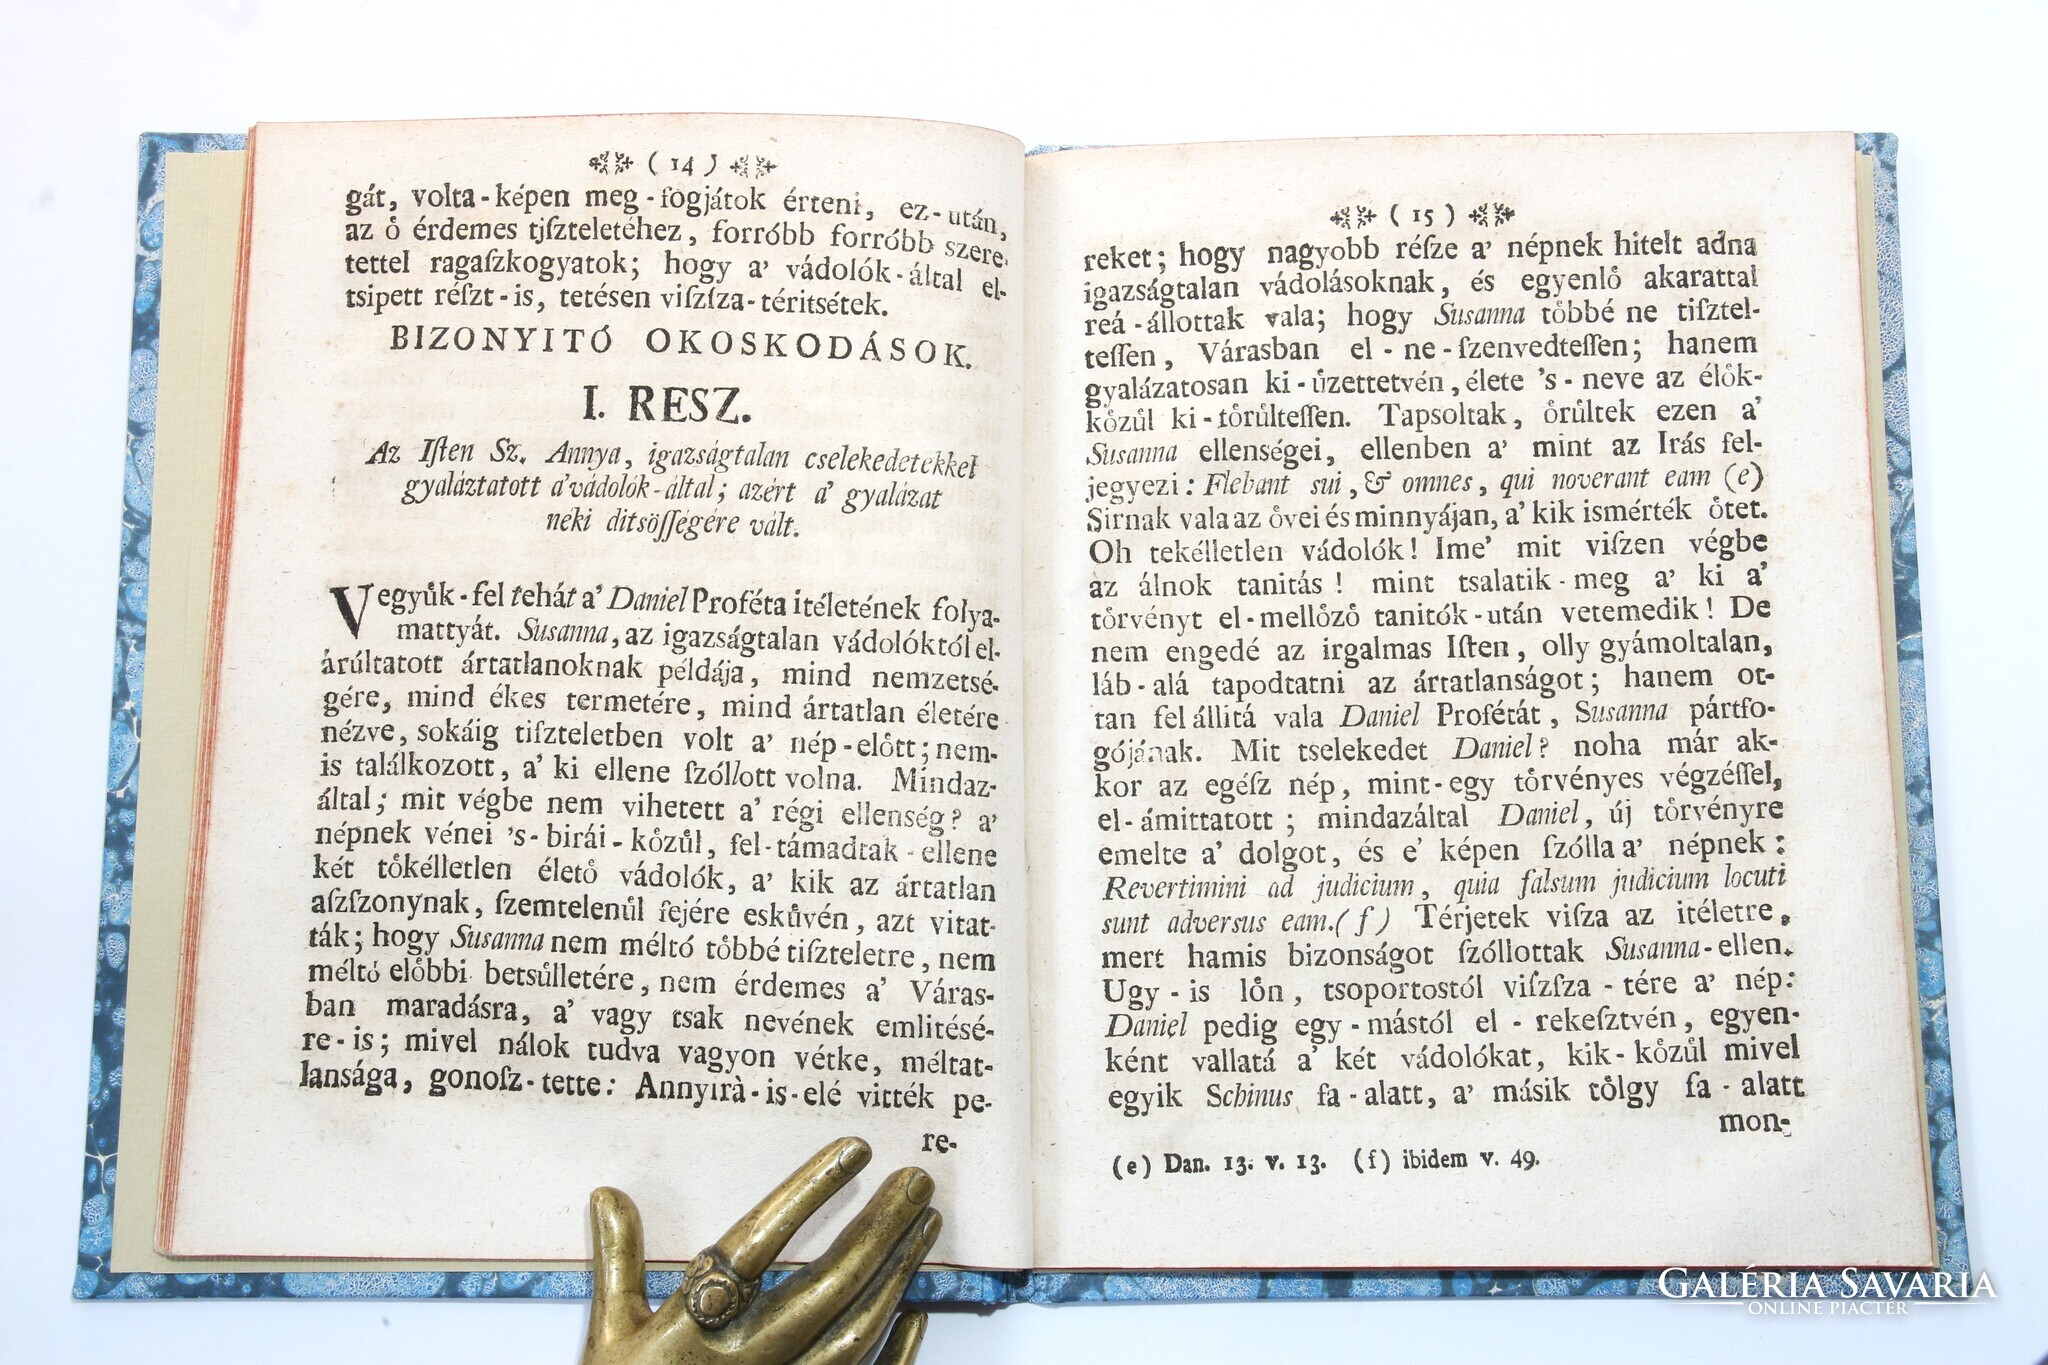 ( 14 )
gát, volta-képen meg-fogjátok érteni, ez-után,
az ő érdemes tjſzteletéhez, forróbb forróbb szere-
tettel ragaſzkogyatok; hogy a' vádolók-által el-
tsipett réſzt-is, tetésen viſzſza-téritsétek.
BIZONYITÓ OKOSKODÁSOK.
I. RESZ.
Az Iſten Sz. Annya, igazságtalan cselekedetekkel
gyaláztatott a' vádolók-által; azért a' gyalázat
néki ditsöſſégére vált.
Vegyük-fel tehát a' Daniel Proféta itéletének folya-
mattyát. Susanna, az igazságtalan vádolóktól el-
árúltatott ártatlanoknak példája, mind nemzetsé-
gére, mind ékes termetére, mind ártatlan életére
nézve, sokáig tiſzteletben volt a' nép-elött; nem-
is találkozott, a' ki ellene ſzóllott volna. Mindaz-
által; mit végbe nem vihetett a' régi ellenség? a'
népnek vénei 's-birái-közül, fel-támadtak-ellene
két tökélletlen életö vádolók, a' kik az ártatlan
aſzſzonynak, ſzemtelenül fejére esküvén, azt vitat-
ták; hogy Susanna nem méltó többé tiſzteletre, nem
méltó elöbbi betsülletére, nem érdemes a' Város-
ban maradásra, a' vagy tsak nevének emlitésé-
re-is; mivel nálok tudva vagyon vétke, méltat-
lansága, gonoſz-tette: Annyirà-is-elé vitték pe-
re-
( 15 )
reket; hogy nagyobb réſze a' népnek hitelt adna
igazságtalan vádolásoknak, és egyenlö akarattal
reá-állottak vala; hogy Susanna többé ne tiſztel-
teſſen, Várasban el-ne-ſzenvedteſſen; hanem
gyalázatosan ki-üzettetvén, élete 's-neve az élök-
közül ki-törülteſſen. Tapsoltak, örültek ezen a'
Susanna ellenségei, ellenben a' mint az Irás fel-
jegyezi: Flebant sui, & omnes, qui noverant eam (e)
Sirnak vala az övei és minnyájan, a' kik ismérték ötet.
Oh tekélletlen vádolók! Ime' mit viſzen végbe
az álnok tanitás! mint tsalatik-meg a' ki a'
törvényt el-mellözö tanitók-után vetemedik! De
nem engedé az irgalmas Iſten, olly gyámoltalan,
láb-alá tapodtatni az ártatlanságot; hanem ot-
tan fel állitá vala Daniel Profétát, Susanna pártfo-
gójának. Mit tselekedet Daniel? noha már ak-
kor az egéſz nép, mint-egy törvényes végzéſſel,
el-ámittatott; mindazáltal Daniel, új törvényre
emelte a' dolgot, és e' képen ſzólla a' népnek:
Revertimini ad judicium, quia falsum judicium locuti
sunt adversus eam.(f) Térjetek viſza az itéletre,
mert hamis bizonságot ſzóllottak Susanna-ellen.
Ugy-is lön, tsoportostól viſzſza-tére a' nép:
Daniel pedig egy-mástól el-rekeſztvén, egyen-
ként vallatá a' két vádolókat, kik-közül mivel
egyik Schinus fa-alatt, a' másik tölgy fa-alatt
mon-
(e) Dan. 13. v. 13. (f) ibidem v. 49.
GALÉRIA SAVARIA
ONLINE PIACTÉR